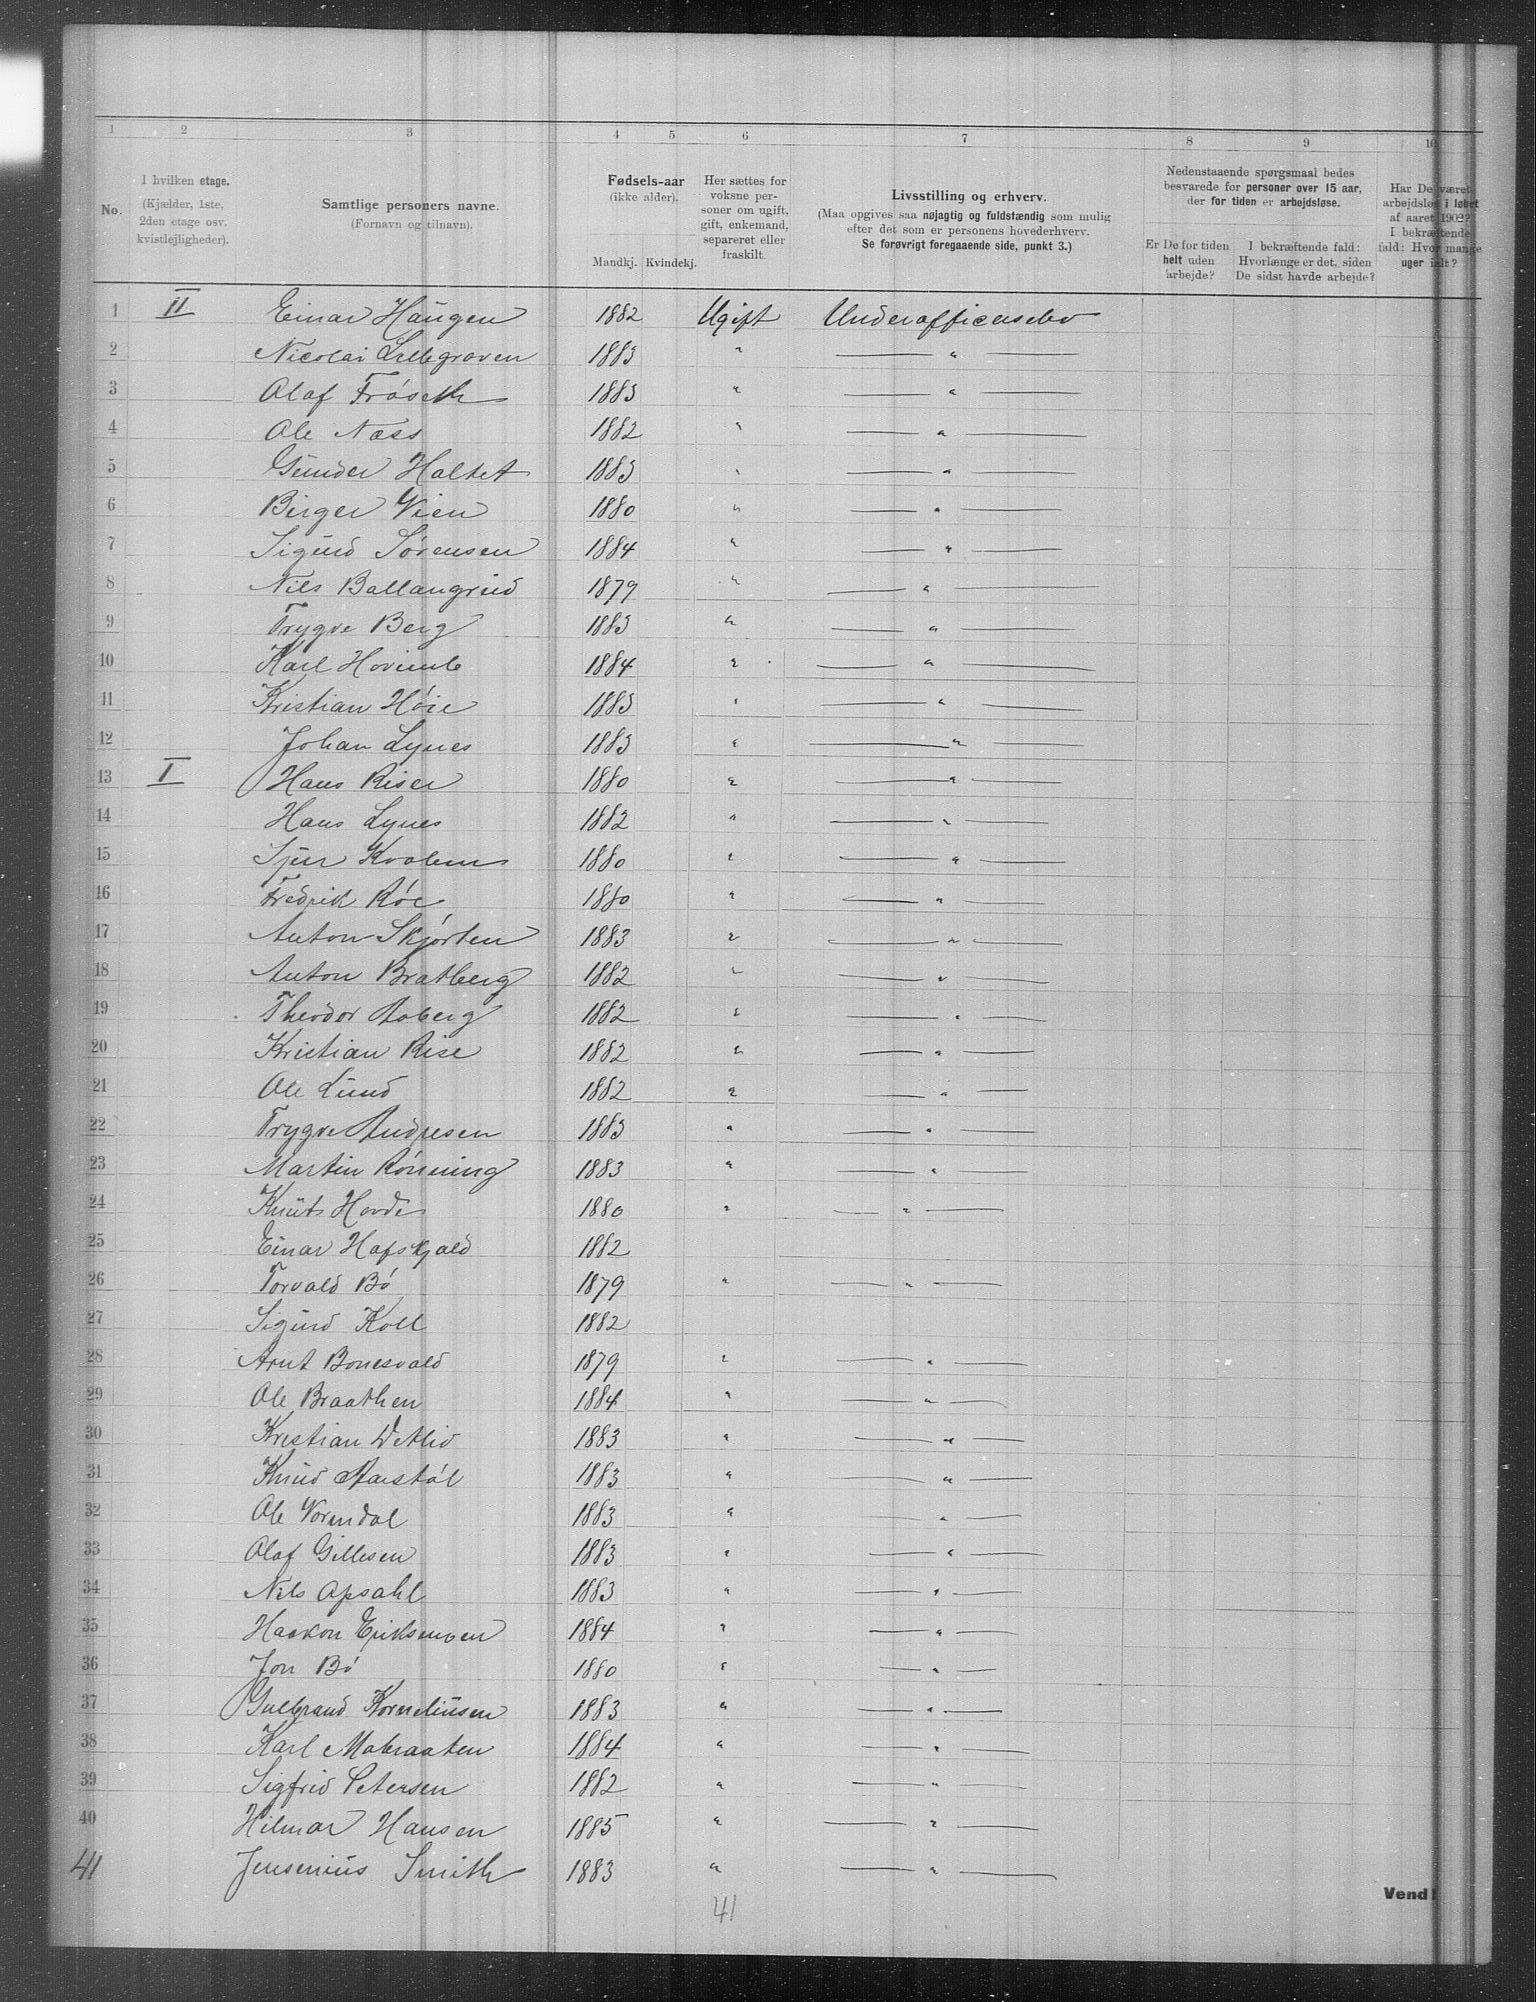 1 2 3 4 5 6 7 8 9 10
No.
I hvilken etage.
(Kjælder, 1ste,
2den etage osv.
kvistlejligheder).
Samtlige personers navne.
(Fornavn og tilnavn).
Fødsels-aar
(ikke alder).
Mandkj. Kvindekj.
Her sættes for
voksne per-
soner om ugift,
gift, enkemand,
separeret eller
fraskilt.
Livsstilling og erhverv.
(Maa opgives saa nøjagtig og fuldstændig som mulig
efter det som er personens hovederhverv.
Se forøvrigt foregaaende side, punkt 3.)
Nedenstaaende spørgsmaal bedes
besvarede for personer over 15 aar,
der for tiden er arbejdsløse.
Er De for tiden
helt uden
arbejde?
I bekræftende fald:
Hvorlænge er det, siden
De sidst havde arbejde?
Har De været
arbejdsløs i løbet
af aaret 1902?
I bekræftende
fald: Hvor mange
uger ialt?
1 II Einar Haugen 1882 Ugift Underofficerselev
2 Nicolai Lillegraven 1883 " — " —
3 Olaf Frøseth 1883 " — " —
4 Ole Næss 1882 " — " —
5 Gunder Holtet 1883 " — " —
6 Birger Vien 1880 " — " —
7 Sigurd Sørensen 1884 " — " —
8 Nils Ballangrud 1879 " — " —
9 Trygve Berg 1883 " — " —
10 Karl 1884 " — " —
11 Kristian Høie 1883 " — " —
12 Johan Lynes 1883 " — " —
13 I Hans Riser 1880 " — " —
14 Hans Lynes 1882 " — " —
15 1880 " — " —
16 Fredrik Røe 1880 " — " —
17 Anton Skjørten 1883 " — " —
18 Anton Bratberg 1882 " — " —
19 Theodor Aaberg 1882 " — " —
20 Kristian Rise 1882 " — " —
21 Ole Lund 1882 " — " —
22 Trygve Andresen 1883 " — " —
23 Martin Rønning 1883 " — " —
24 Knut Hovde 1880 " — " —
25 Einar Hafskjold 1882
26 Torvald Bø 1879 " — " —
27 Sigurd Koll 1882
28 Arnt Bonesvald 1879 " — " —
29 Ole Braathen 1884 " — " —
30 Kristian 1883 " — " —
31 Knud 1883 " — " —
32 Ole Vormdal 1883 " — " —
33 Olaf Gillesen 1883 " — " —
34 Nils Opsahl 1883 " — " —
35 Haakon 1884 " — " —
36 Jon Bø 1880 " — " —
37 Gulbrand Korneliusen 1883 " — " —
38 Karl Mobraaten 1884 " — " —
39 Sigfrid Petersen 1882 " — " —
40 Hilmar Hansen 1885 " — " —
41 Jensenius Smith 1883 " — " —
41
Vend!